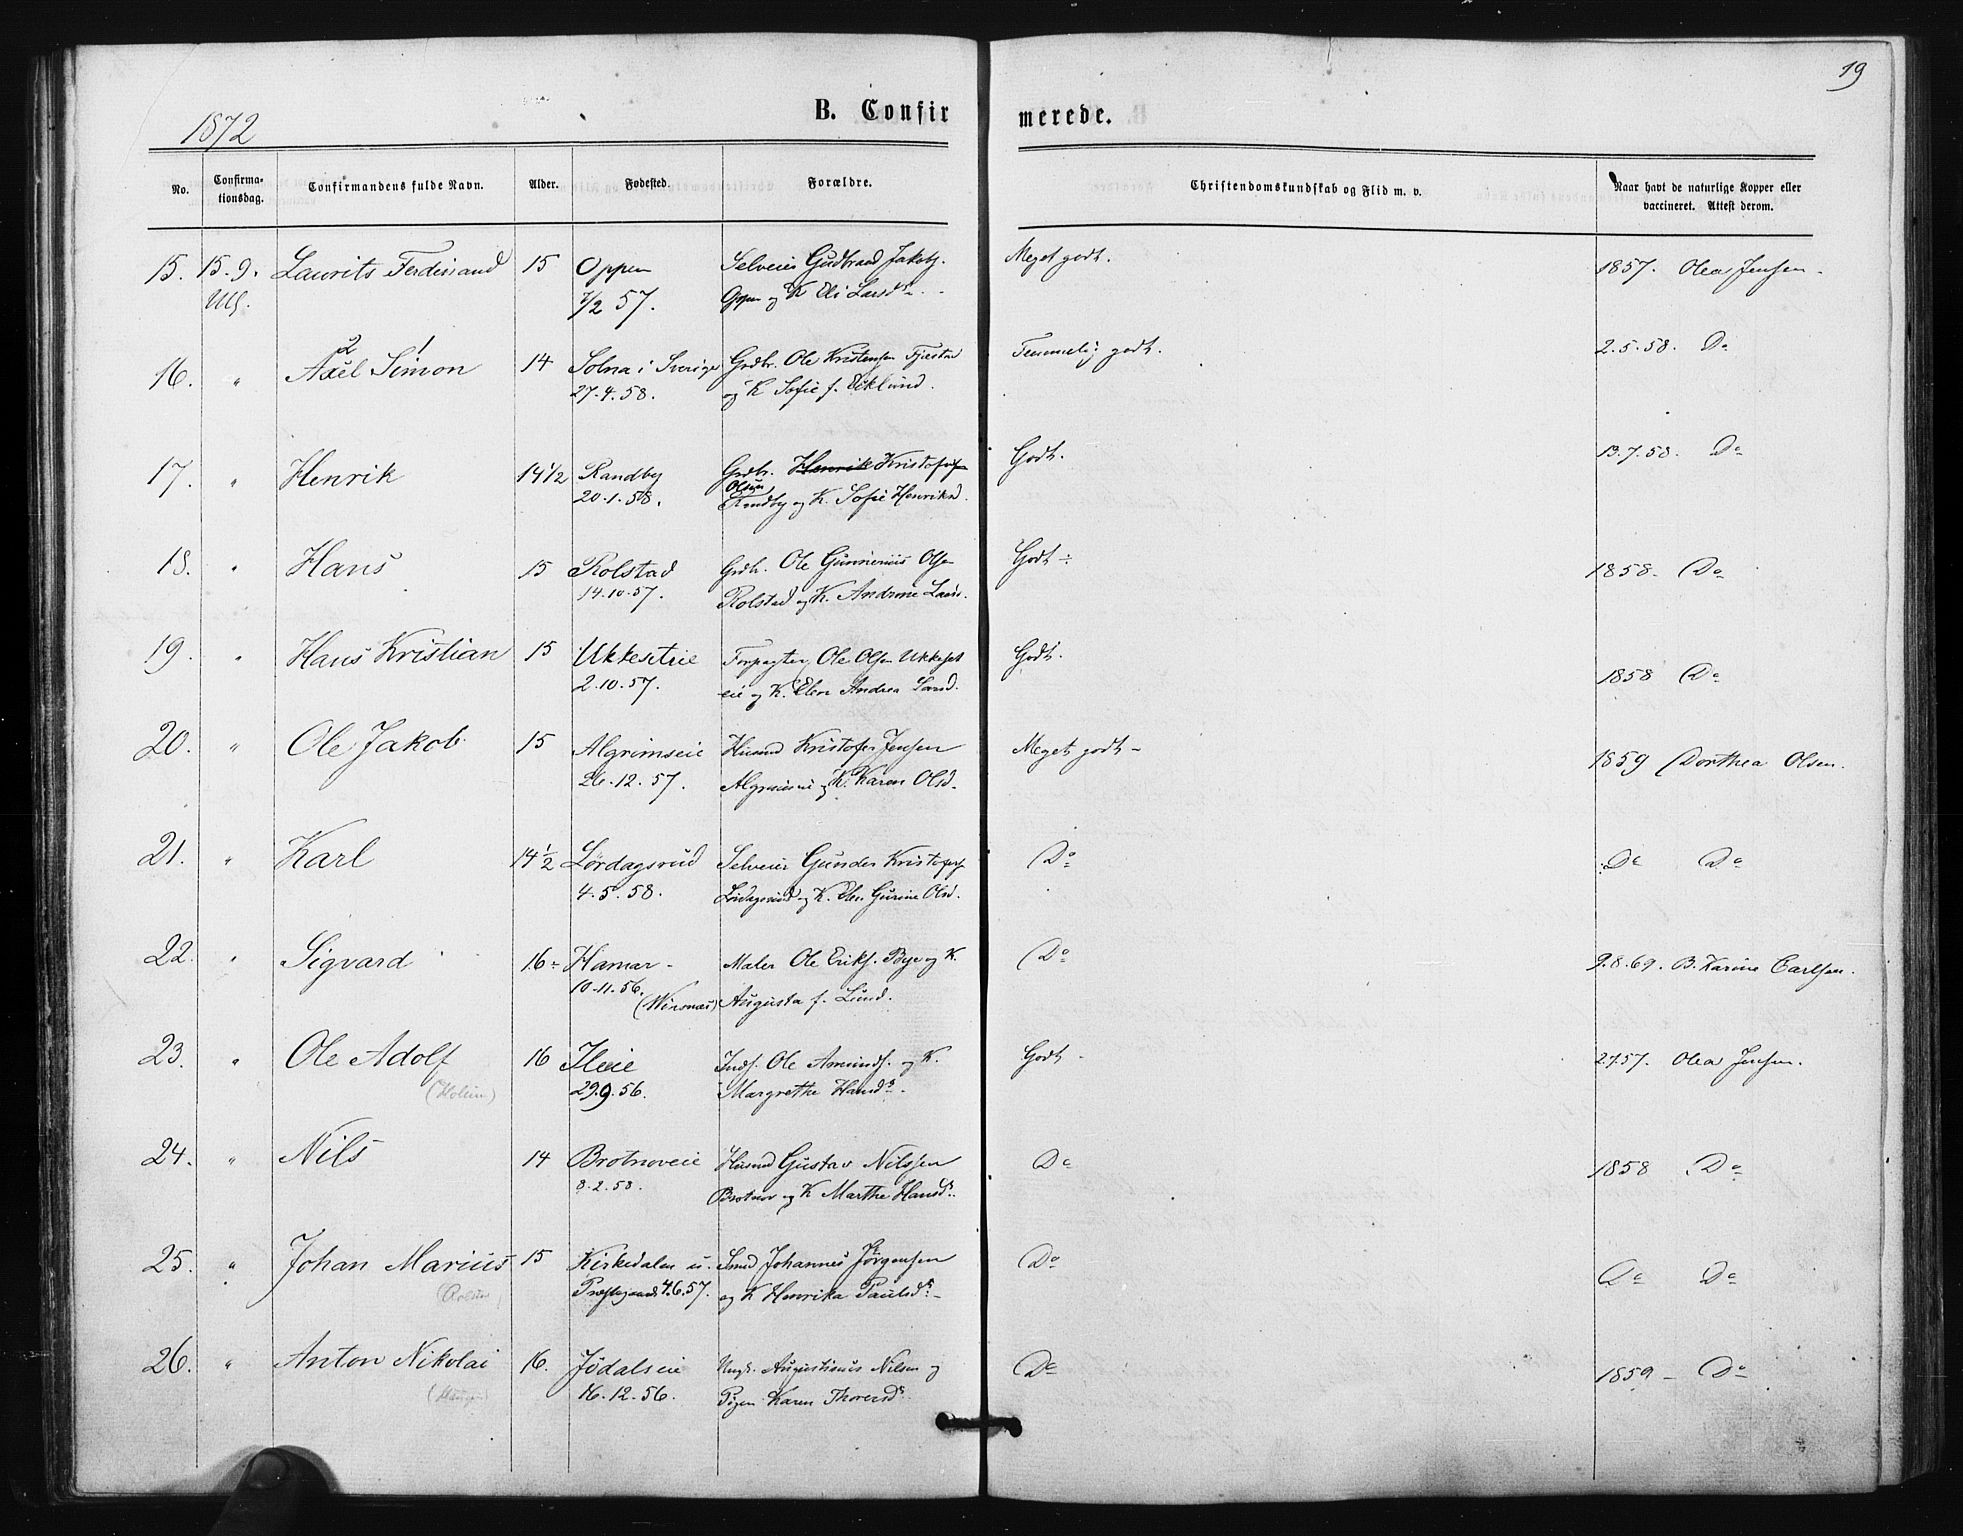 19
1872
B. Confir merede.
No. Confirma-tionsdag. Confirmandens fulde Navn. Alder. Fødested. Forældre. Christendomskundskab og Flid m. v. Naar havt de naturlige Kopper eller vaccineret. Attest derom.
15. 15.9. Laurits Ferdinand 15 Oppen Selveier Gudbrand Jakobs. Meget godt. 1857. Olea Jensen
Ull. 7/2 57. Oppen og K Eli Larsdr.
2 1
16. " Axel Simon 14 Solna i Sverige Grdbr. Ole Kristensen Fjestad Temmelig godt. 2.5.58. Do
27.4.58. og K Sofie f. Eklund.
17. " Henrik 14 1/2 Randby Grdbr. Henrik Kristofersen Godt. 13.7.58. Do
20.1.58. Olsen
Randby og K. Sofie Henriksd.
18. " Hans 15 Rolstad Grdb. Ole Gunnerius Olsen Godt ÷ 1858. Do
14.10.57. Rolstad og K. Andrine Lars.
19. " Hans Kristian 15 Ukkesteie Forpagter Ole Olsen Ukkest Godt. 1858 Do
2.10.57. eie og K. Elen Andrea Larsd.
20. " Ole Jakob 15 Algrimseie Husmd Kristofer Jensen Meget godt 1859 Dorthea Olsen.
26.12.57. Algrimseie og K. Karen Olsd.
21. " Karl 14 1/2 Lørdagsrud Selveier Gunder Kristofers Do Do Do
4.5.58. Lørdagsrud og K. Elen Gurine Olsd.
22. " Sigvard 16 Hamar Maler Ole Eriks. Bye og K. Do 9.8.69. B. Karine Carlsen.
10.11.56. Augusta f. Lund.
23. " Ole Adolf 16 Ileie Inds. Ole Amunds. og K. Godt 2.7.57. Olea Jensen.
(Holum) 29.9.56. Margrethe Hansdr.
24. " Nils 14 Brotnoveie Husmd Gustav Nilssen Do 1858 Do
8.2.58. Brotnov og K Marthe Hansdr.
25. " Johan Marius 15 Kirkedalen u. Smed Johannes Jörgensen Do Do Do
Præstegaard 4.6.57. og K Henrika Paulsdr.
26. " Anton Nikolai 16. Jödalseie Ungk. Augustinus Nilsen og Do 1859 Do
(Haugen) 16.12.56. Pigen Karen Thorersdr.